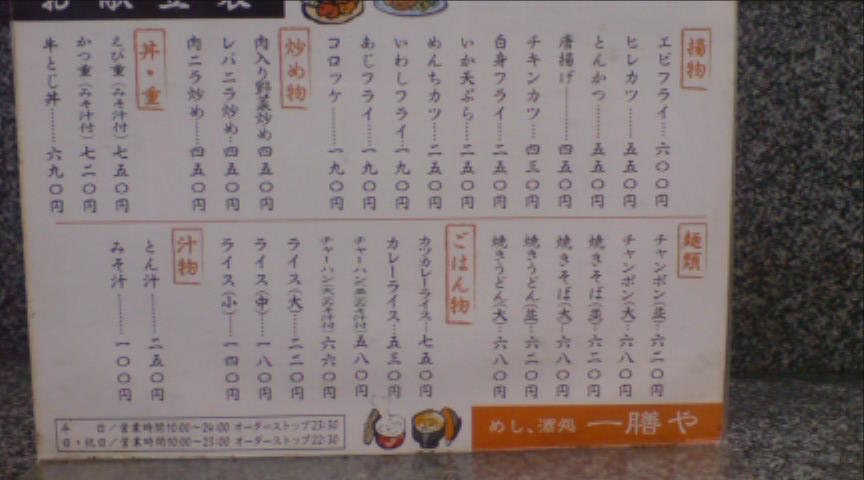 揚物
エビフライ……六〇〇円
ヒレカツ……五五〇円
とんかつ……五五〇円
唐揚げ……四五〇円
チキンカツ……四三〇円
白身フライ……二五〇円
いか天ぷら……二五〇円
めんちカツ……二五〇円
いわしフライ……一九〇円
あじフライ……一九〇円
コロッケ……一九〇円
炒め物
肉入り野菜炒め 四五〇円
レバニラ炒め…四五〇円
肉ニラ炒め……四五〇円
丼・重
えび重(みそ汁付)七五〇円
かつ重(みそ汁付)七二〇円
牛とじ丼……六九〇円
麺類
チャンポン(並)…六二〇円
チャンポン(大)…六八〇円
焼きそば(並)…六二〇円
焼きそば(大)…六八〇円
焼きうどん(並)…六二〇円
焼きうどん(大)…六八〇円
ごはん物
カツカレーライス…七五〇円
カレーライス…五三〇円
チャーハン(並)(みそ汁付)五八〇円
チャーハン(大)(みそ汁付)六六〇円
ライス(大)……二二〇円
ライス(中)……一八〇円
ライス(小)……一四〇円
汁物
とん汁………二五〇円
みそ汁………一〇〇円
平 日/営業時間10:00〜24:00 オーダーストップ23:30
日・祝日/営業時間10:00〜23:00 オーダーストップ22:30
めし、酒処 一膳や